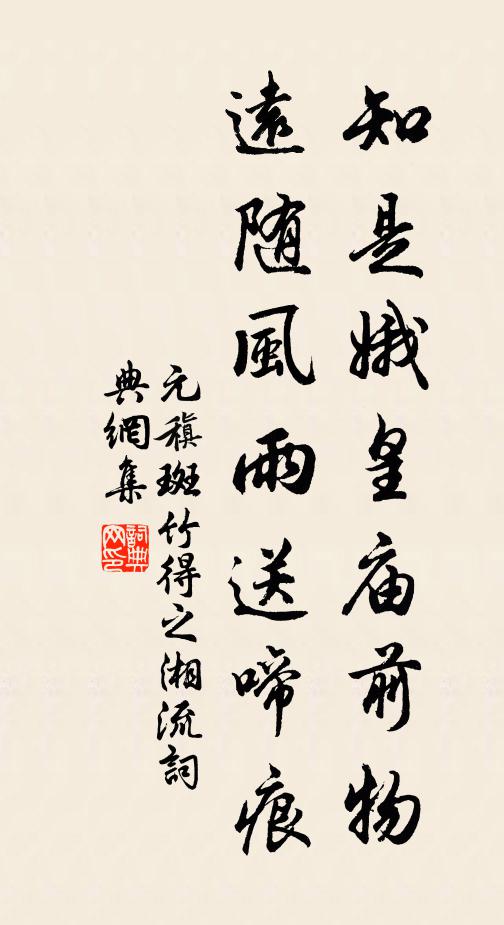 知是娥皇庙前物
遠随風雨送啼痕
元稹斑竹得之湘流詞
典網集
詞典
网印